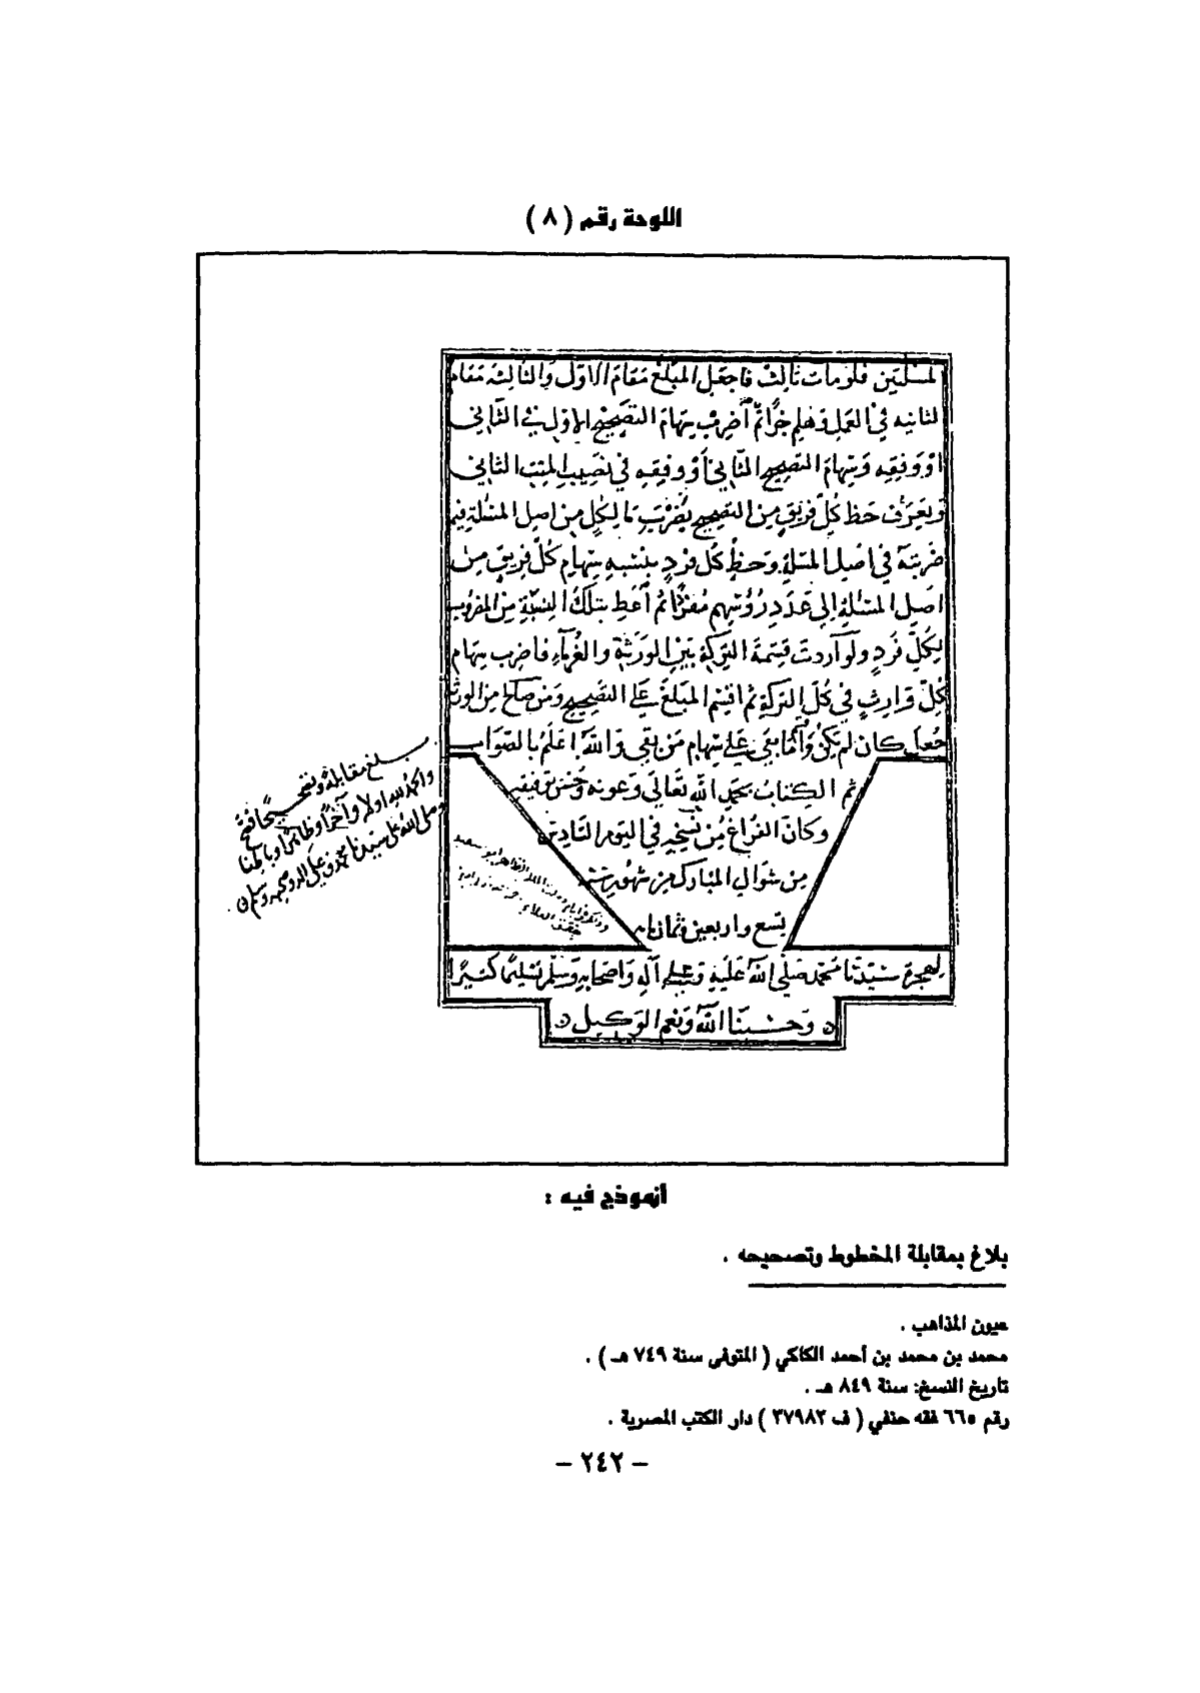 اللوحة رقم ( ٨ )
المسئلتين فلو مات ثالث فاجعل المبلغ مقام الاول والثالثه مقام
الثانيه في العمل وهلم جرًّا ثم اضرب سهام التصحيح الاول في الثاني
او وفقه وسهام التصحيح الثاني او وفقه في نصيب الميت الثاني
وتعرف حظ كل فريق من التصحيح بضرب ما لكل من اصل المسئلة فيما
ضربته في اصل المسئلة وحظ كل فرد بنسبه سهام كل فريق من
اصل المسئلة الى عدد رؤسهم مفردًا ثم اعط بتلك النسبة من المضروب
لكل فرد ولو اردت قسمة التركة بين الورثة والغرماء فاضرب سهام
كل وارث في كل التركة ثم اقسم المبلغ على التصحيح ومن صالح من الورثة
جعل كان لم يكن واقسم ما بقي على سهام من بقي والله اعلم بالصواب
تم الكتاب بحمد الله تعالى وعونه وحسن توفيقه
وكان الفراغ من نسخه في اليوم السادس
من شوال المبارك من شهور سنة
تسع واربعين وثمان مايه
لهجرة سيدنا محمد صلى الله عليه وعلى آله واصحابه وسلم تسليما كثيرًا
وحسبنا الله ونعم الوكيل
بلغ مقابلة وتصحيحًا فصح
والحمد لله اولا وآخرًا وظاهرًا وباطنا
وصلى الله على سيدنا محمد وعلى آله وصحبه وسلم
أنموذج فيه :
بلاغ بمقابلة المخطوط وتصحيحه .
عيون المذاهب .
محمد بن محمد بن أحمد الكاكي ( المتوفى سنة ٧٤٩ هـ ) .
تاريخ النسخ: سنة ٨٤٩ هـ .
رقم ٦٦٥ فقه حنفي ( ف ٣٧٩٨٢ ) دار الكتب المصرية .
– ٢٤٢ –